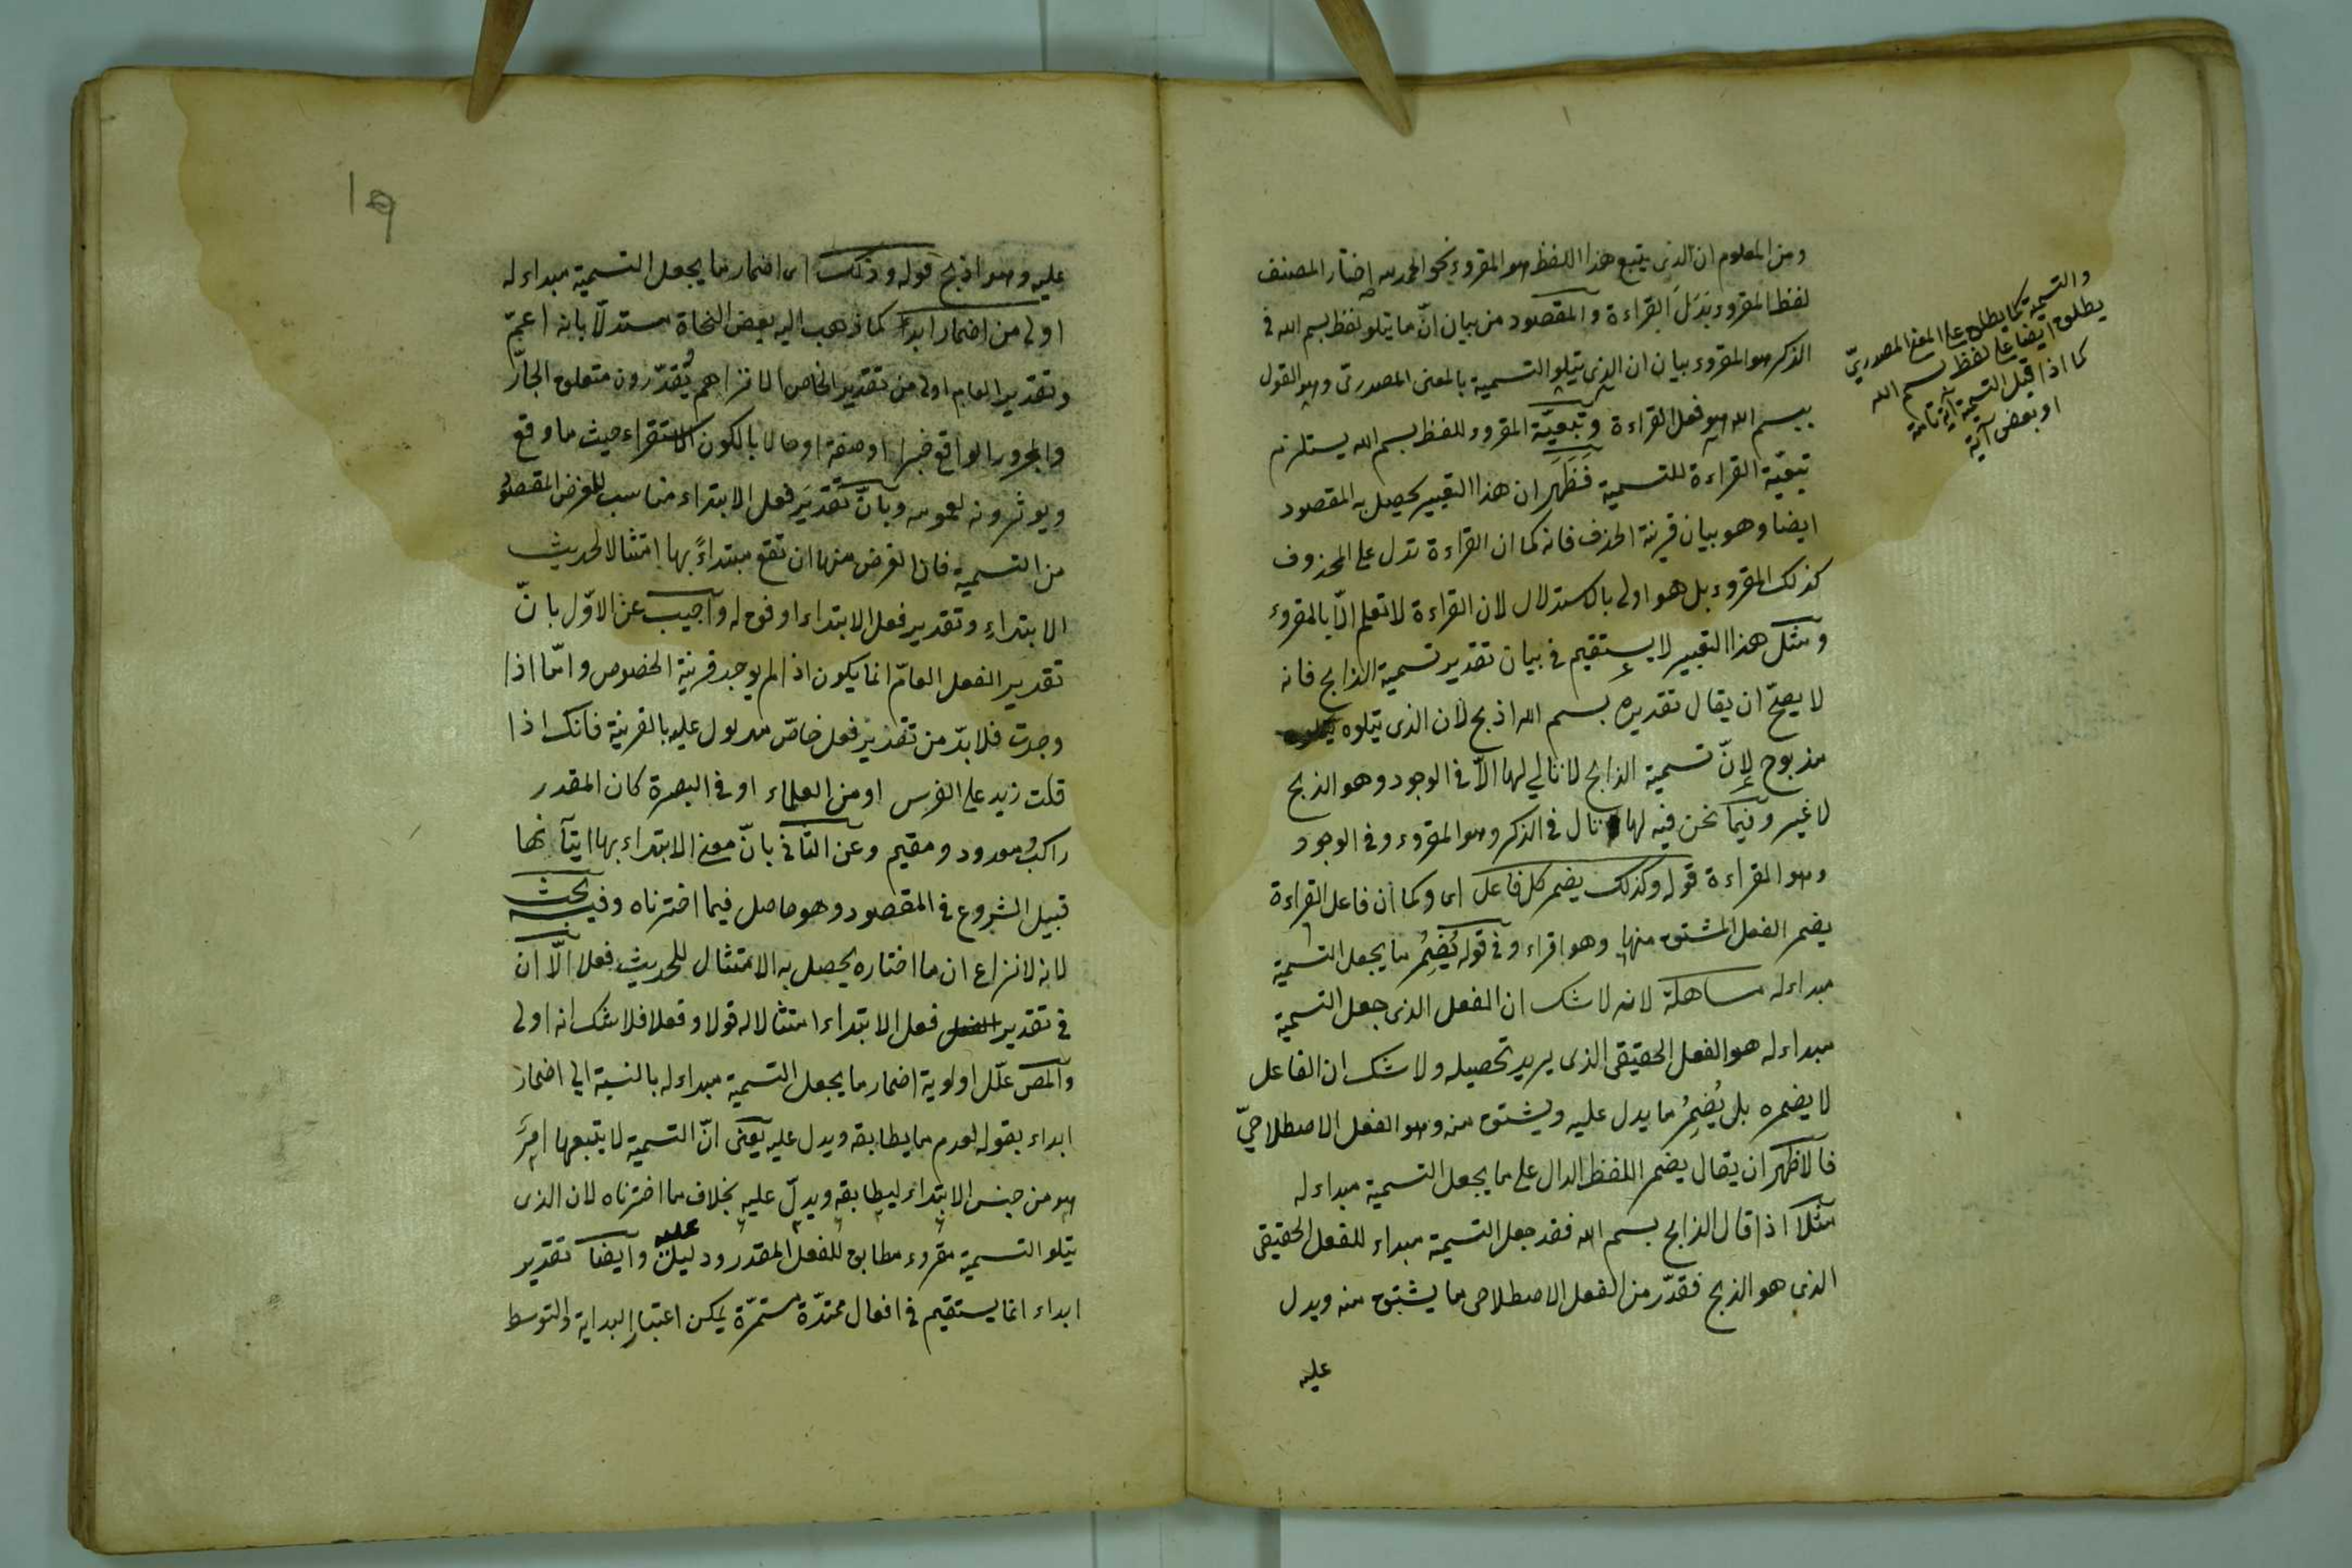 ومن المعلوم ان الذى يتبع هذا اللفظ هو المقروء نحو الحمد لله اختار المصنف
لفظ المقروء بَدَلَ القراءة والمقصود من بيان انّ ما يتلو لفظ بسم الله فى
الذكر هو المقروء بيان ان الذى يتلو التسمية بالمعنى المصدرىّ وهو القول
ببسم الله هو فعل القراءة وتبعيّة المقروء للفظ بسم الله يستلزم
تبعيّة القراءة للتسمية فَظَهَر ان هذا التعبير يحصل به المقصود
ايضا وهو بيان قرينة الحذف فانه كما ان القراءة تدل على المحذوف
كذلك المقروء بل هو اولى بالاستدلال لان القراءة لا تعلم الّا بالمقروء
ومثل هذا التعبير لا يستقيم فى بيان تقدير تسمية الذابح فانه
لا يصحّ ان يقال تقديره بسم الله اذبح لان الذى يتلوه
مذبوح لانّ تسمية الذابح لا تالي لها الّا فى الوجود وهو الذبح
لا غير وفيما نحن فيه لها تال فى الذكر وهو المقروء وفى الوجود
وهو القراءة قوله وكذلك يضمر كل فاعل اى وكما ان فاعل القراءة
يضمر الفعل المشتق منها وهو اقراء وفى قوله يُضمِرُ ما يجعل التسمية
مبداء له مساهلة لانه لا شك ان الفعل الذى جعل التسمية
مبداء له هو الفعل الحقيقى الذى يريد تحصيله ولا شك ان الفاعل
لا يضمره بل يُضمِرُ ما يدل عليه ويشتق منه وهو الفعل الاصطلاحىّ
فالاظهر ان يقال يضمر اللفظ الدال على ما يجعل التسمية مبداء له
مثلا اذا قال الذابح بسم الله فقد جعل التسمية مبداء للفعل الحقيقى
الذى هو الذبح فقدّر من الفعل الاصطلاحى ما يشتق منه ويدل
عليه
والتسمية كما يطلق على المعنى المصدرىّ
يطلق ايضا على لفظ بسم الله
كما اذا قيل التسمية آية تامة
او بعض آية
١٩
عليه وهو اذبح قوله وذلك اى اضمار ما يجعل التسمية مبداء له
اولى من اضمار ابداء كما ذهب اليه بعض النحاة مستدلّا بانه اعمّ
وتقدير العام اولى من تقدير الخاص الا ترا هم يُقدّرون متعلق الجارّ
والمجرور الواقع خبرا او صفة او حالا بالكون الاستقراء حيث ما وقع
ويوثرونه لعمومه وبانّ تقديَر فعل الابتداء مناسب للغرض المقصود
من التسمية فان الغرض منها ان تقع مبتداءً بها امتثالا لحديث
الابتداء وتقدير فعل الابتداء اوفق له واجيب عن الاوّل بانّ
تقدير الفعل العامّ انما يكون اذا لم يوجد قرينة الخصوص وامّا اذا
وجدت فلا بدّ من تقدير فعل خاصّ مدلول عليه بالقرينة فانك اذا
قلت زيد على الفرس او من العلماء او فى البصرة كان المقدر
راكب ومعدود ومقيم وعن الثانى بانّ معنى الابتداء بها ايتآنها
قبيل الشروع فى المقصود وهو حاصل فيما اخترناه وفيه بحث
لانه لا نزاع ان ما اختاره يحصل به الامتثال للحديث فعلا الّا ان
فى تقدير فعل الابتداء امتثالا له قولا وفعلا فلا شك انه اولى
والمص علّل اولوية اضمار ما يجعل التسمية مبداء له بالنسبة الى اضمار
ابداء بقوله لعدم ما يطابقه ويدل عليه يعنى انّ التسمية لا يتبعها امر
هو من جنس الابتداء ليطابقه ويدلّ عليه بخلاف ما اخترناه لان الذى
يتلو التسمية مقروء مطابق للفعل المقدر ودليل عليه وايضا تقدير
ابداء انما يستقيم فى افعال ممتدّة مستمرّة يمكن اعتبار البداية والتوسط